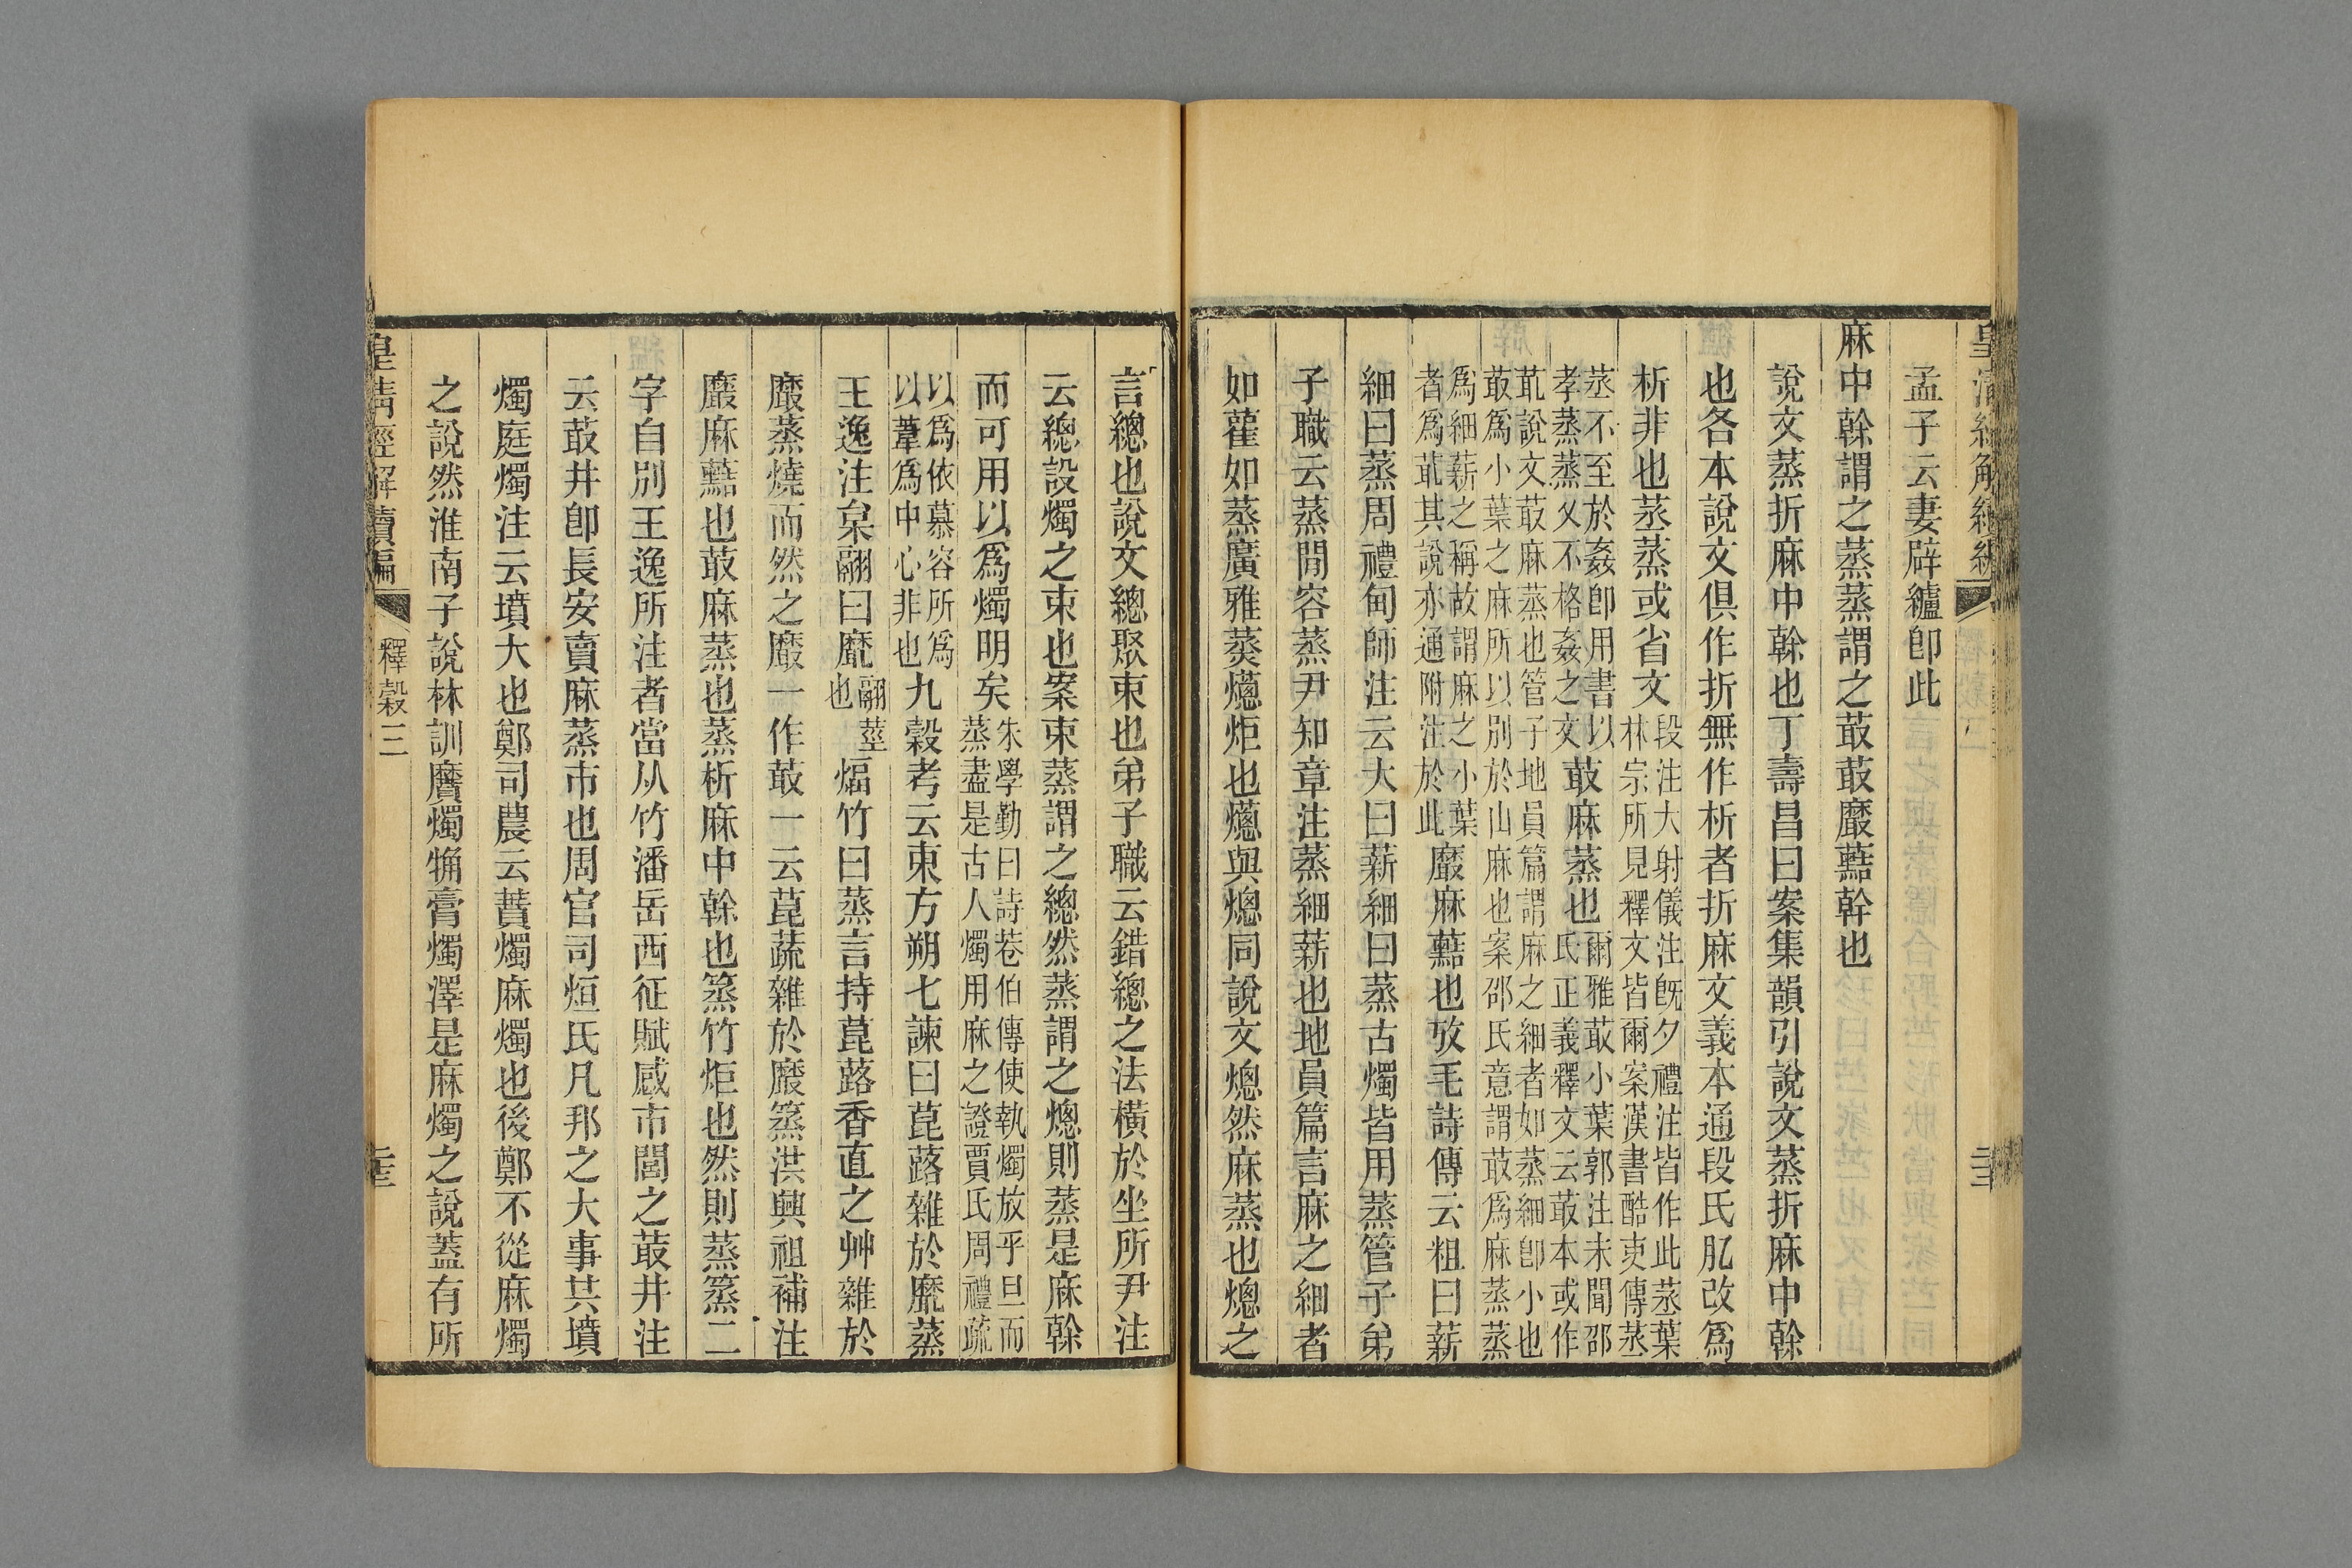 孟子云妻辟纑卽此
麻中榦謂之蒸蒸謂之菆菆黀䕸幹也
說文蒸折麻中榦也丁壽昌曰案集韻引說文蒸折麻中榦
也各本說文俱作折無作析者折麻文義本通段氏肊改爲
析非也烝蒸或省文
段注大射儀注旣夕禮注皆作此烝葉
林宗所見釋文皆爾案漢書酷吏傳烝
烝不至於姦卽用書以
孝蒸蒸乂不格姦之文
菆麻蒸也
爾雅菆小葉郭注未聞邵
氏正義釋文云菆本或作
菆說文菆麻蒸也管子地員篇謂麻之細者如蒸細卽小也
菆爲小葉之麻所以別於山麻也案邵氏意謂菆爲麻蒸蒸
爲細薪之稱故謂麻之小葉
者爲菆其說亦通附注於此
黀麻䕸也攷毛詩傳云粗曰薪
細曰蒸周禮甸師注云大曰薪細曰蒸古燭皆用蒸管子弟
子職云蒸間容蒸尹知章注蒸細薪也地員篇言麻之細者
如雚如蒸廣雅蒸炬也與熜同說文熜然麻蒸也熜之
言總也說文總聚束也弟子職云錯總之法橫於坐所尹注
云總設燭之束也案束蒸謂之總然蒸謂之熜則蒸是麻榦
而可用以爲燭明矣
朱學勤曰詩巷伯傳使執燭放乎旦而
蒸盡是古人燭用麻之證賈氏周禮疏
以爲依慕容所爲
以葦爲中心非也
九穀考云東方朔七諫曰菎蕗雜於黀蒸
王逸注枲翮曰黀
翮莖
也
煏竹曰蒸言持菎蕗香直之艸雜於
黀蒸燒而然之黀一作菆一云菎蔬雜於黀蒸洪興祖補注
黀麻䕸也菆麻蒸也蒸析麻中榦也䉄竹炬也然則蒸䉄二
字自別王逸所注者當从竹潘岳西征賦感市閭之菆井注
云菆井卽長安賣麻蒸市也周官司烜氏凡邦之大事共墳
燭庭燭注云墳大也鄭司農云蕡燭麻燭也後鄭不從麻燭
之說然淮南子說林訓黂燭捔膏燭澤是麻燭之說蓋有所
皇淸經解續編
釋穀三